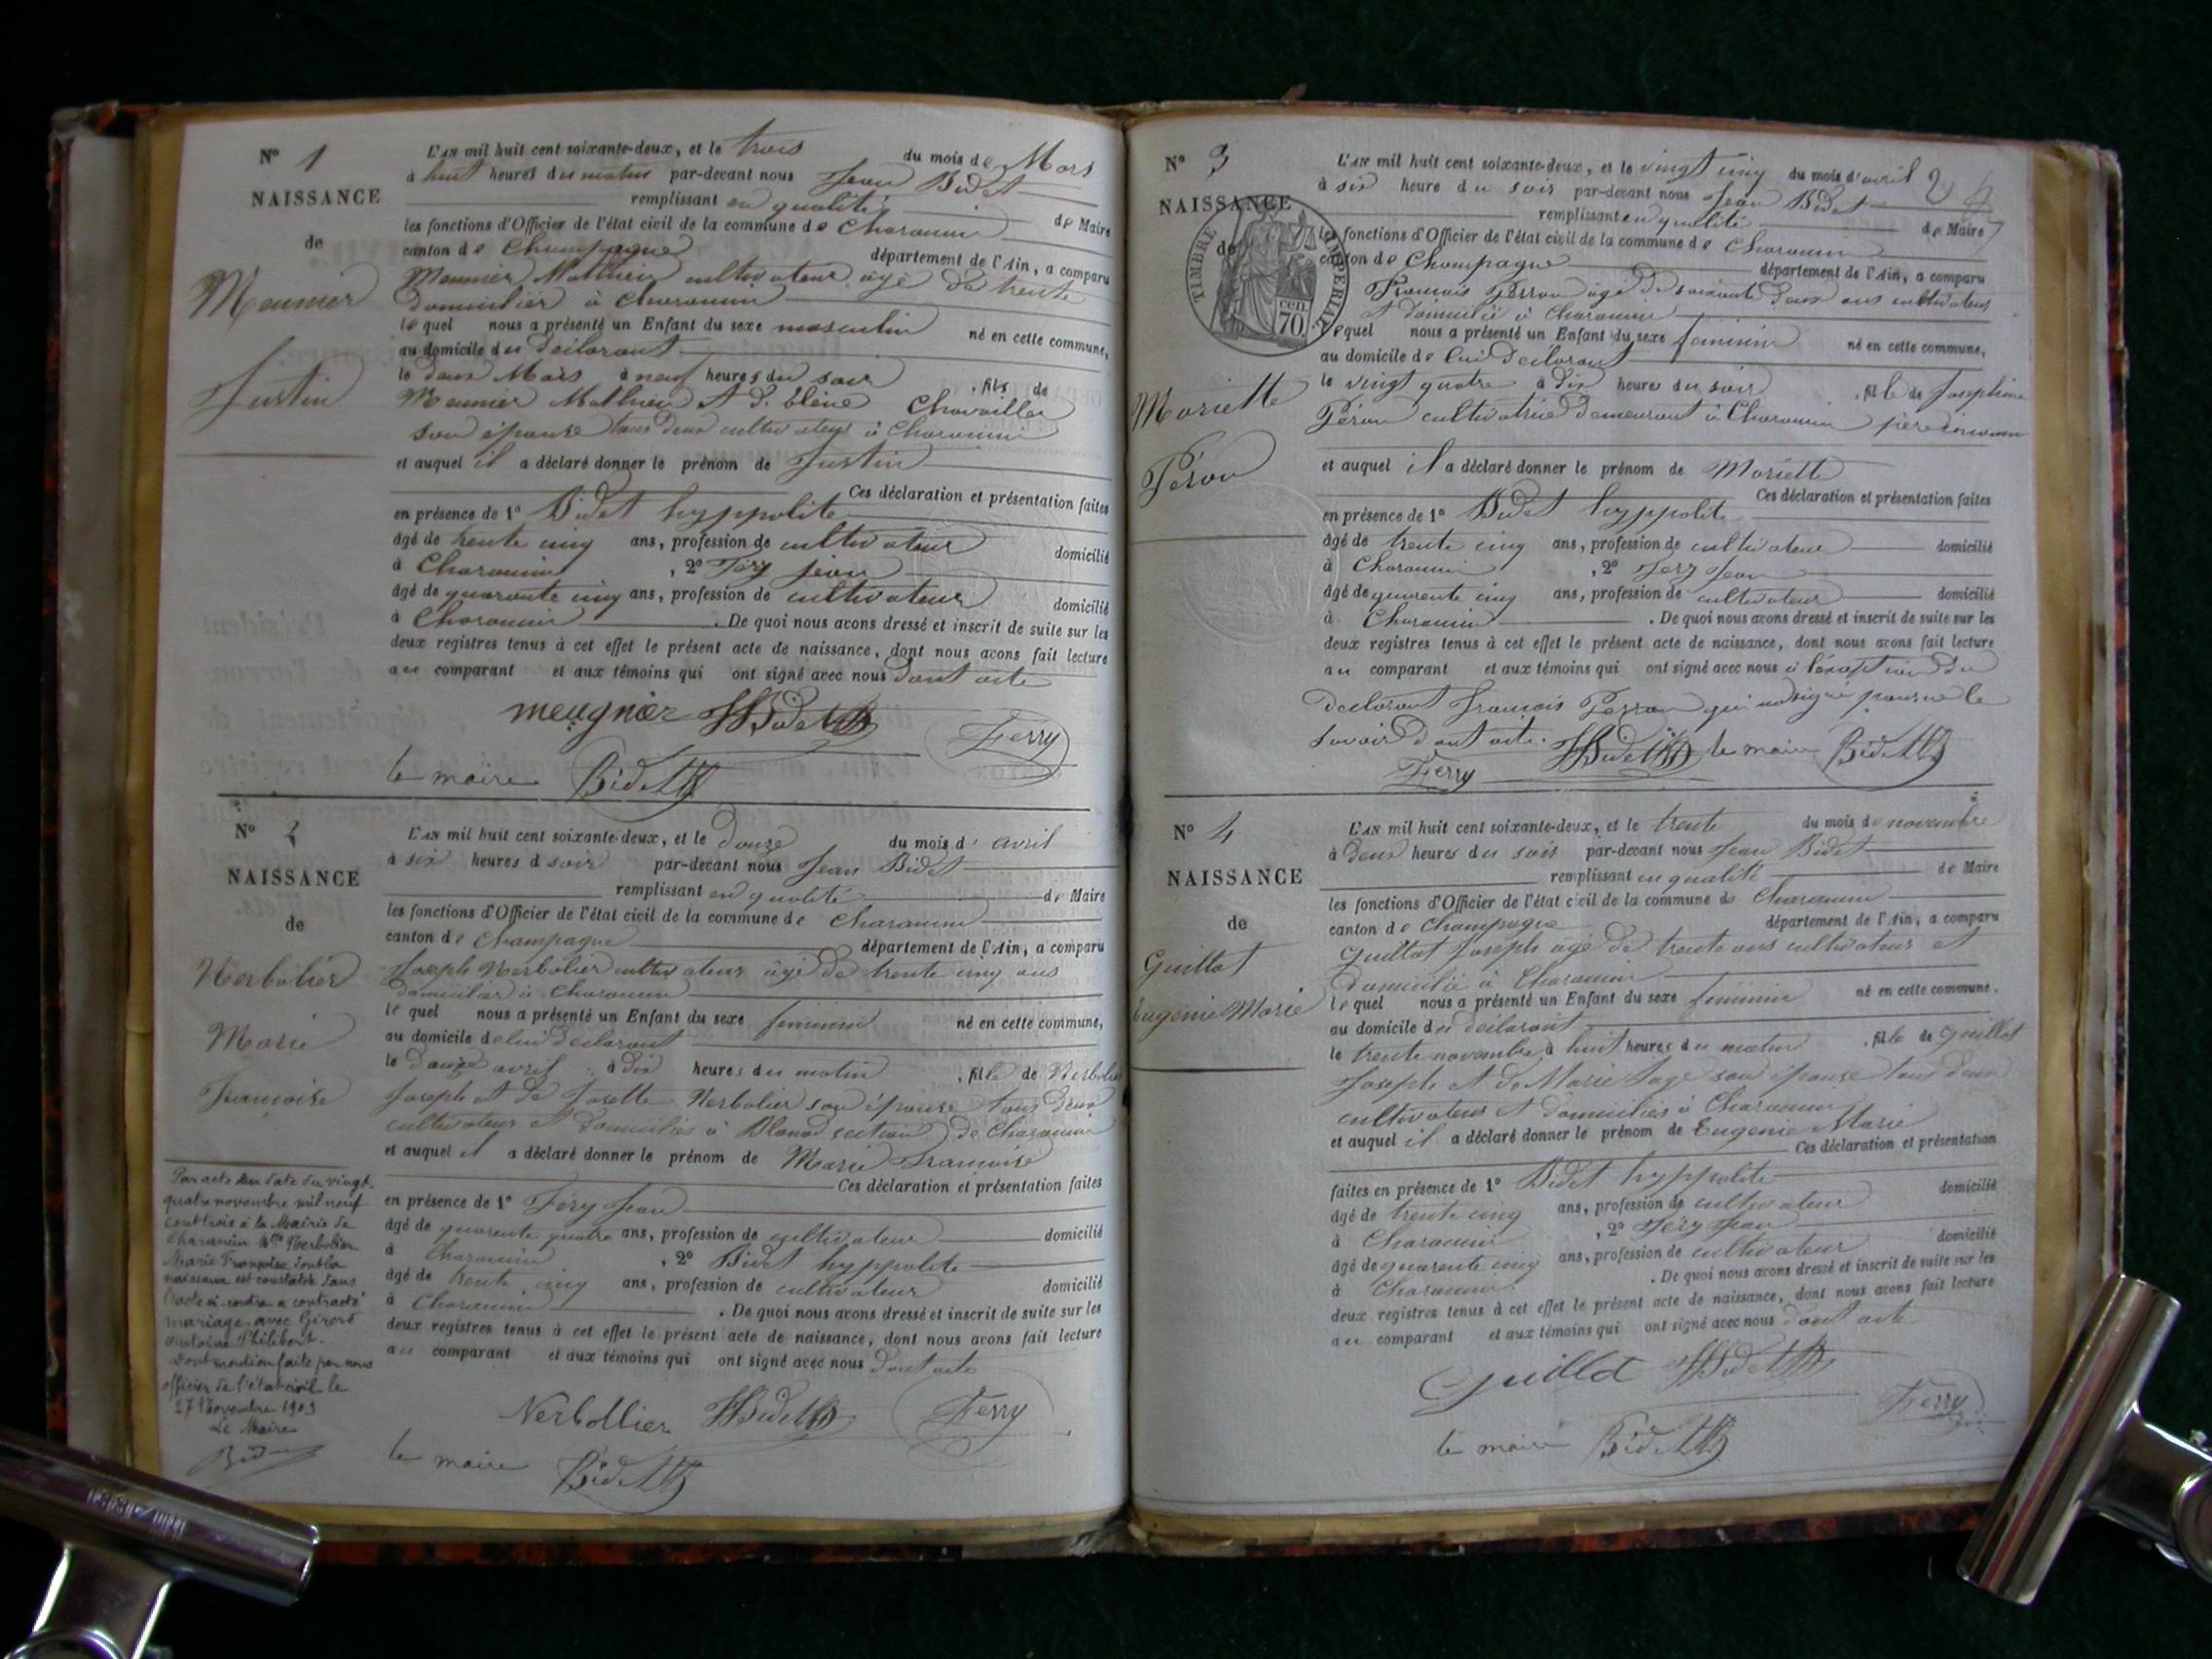 N° 1
NAISSANCE
de
Meunier
Justin
L'AN mil huit cent soixante-deux, et le trois du mois de Mars
à huit heures du matin par-devant nous Jean Bidet
remplissant en qualité de Maire
les fonctions d'Officier de l'état civil de la commune de Charancin
canton de Champagne département de l'Ain, a comparu
Meunier Mathieu cultivateur âgé de trente
domicilier à Charancin
lequel nous a présenté un Enfant du sexe masculin né en cette commune,
au domicile du déclarant
le deux Mars à neuf heures du soir , fils de
Meunier Mathieu et d. Hélène
son épouse tous deux cultivateurs à Charancin
et auquel il a déclaré donner le prénom de Justin
Ces déclaration et présentation faites
en présence de 1° Bidet hyppolite
âgé de trente cinq ans, profession de cultivateur domicilié
à Charancin , 2° Féry jean
âgé de quarante cinq ans, profession de cultivateur domicilié
à Charancin . De quoi nous avons dressé et inscrit de suite sur les
deux registres tenus à cet effet le présent acte de naissance, dont nous avons fait lecture
au comparant et aux témoins qui ont signé avec nous Dont acte
meugnier HBidet
Ferry
le maire Bidet
N° 2
NAISSANCE
de
Nerbolier
Marie
Françoise
L'AN mil huit cent soixante-deux, et le douze du mois d' avril
à six heures d soir par-devant nous Jean Bidet
remplissant en qualité de Maire
les fonctions d'Officier de l'état civil de la commune de Charancin
canton de Champagne département de l'Ain, a comparu
Joseph Nerbolier cultivateur âgé de trente cinq ans
domicilier à Charancin
lequel nous a présenté un Enfant du sexe féminin né en cette commune,
au domicile de lui déclarant
le douze avril à dix heures du matin , fille de Nerbolier
Joseph et de Josette Nerbolier son épouse tous deux
cultivateurs et domiciliés à section de Charancin
et auquel il a déclaré donner le prénom de Marie Françoise
Ces déclaration et présentation faites
en présence de 1° Féry Jean
âgé de quarente quatre ans, profession de cultivateur domicilié
à Charancin , 2° Bidet hyppolite
âgé de trente cinq ans, profession de cultivateur domicilié
à Charancin . De quoi nous avons dressé et inscrit de suite sur les
deux registres tenus à cet effet le présent acte de naissance, dont nous avons fait lecture
au comparant et aux témoins qui ont signé avec nous Dont acte
Nerbollier HBidet Ferry
le maire Bidet
Par acte en date du vingt
quatre novembre mil neuf
cent trois à la Mairie de
Charancin Nerbolier
Marie Françoise dont la
naissance est constatée dans
l'acte ci-contre a contracté
mariage avec Girerd
Antoine Philibert.
Dont mention faite par nous
officier de l'état civil le
27 Novembre 1903
Le Maire
N° 3
NAISSANCE
de
TIMBRE IMPERIAL
70 cen.
Mariette
Péron
L'AN mil huit cent soixante-deux, et le vingt cinq du mois d'avril
à six heure du soir par-devant nous Jean Bidet
remplissant en qualité de Maire
les fonctions d'Officier de l'état civil de la commune de Charancin
canton de Champagne département de l'Ain, a comparu
François Perron âgé de soixante deux ans cultivateur
et domicilié à Charancin
lequel nous a présenté un Enfant du sexe féminin né en cette commune,
au domicile de lui déclarant
le vingt quatre à dix heures du soir , fille de Josephine
Péron cultivatrice demeurant à Charancin père inconnu
et auquel il a déclaré donner le prénom de Mariette
Ces déclaration et présentation faites
en présence de 1° Bidet hyppolite
âgé de trente cinq ans, profession de cultivateur domicilié
à Charancin , 2° Fery Jean
âgé de quarente cinq ans, profession de cultivateur domicilié
à Charancin . De quoi nous avons dressé et inscrit de suite sur les
deux registres tenus à cet effet le présent acte de naissance, dont nous avons fait lecture
au comparant et aux témoins qui ont signé avec nous à l'exception du
déclarant François Perron qui na signé pour ne le
savoir dont acte. HBidet le maire Bidet
Ferry
N° 4
NAISSANCE
de
Guillot
Eugenie Marie
L'AN mil huit cent soixante-deux, et le trente du mois de novembre
à deux heures du soir par-devant nous Jean Bidet
remplissant en qualité de Maire
les fonctions d'Officier de l'état civil de la commune de Charancin
canton de Champagne département de l'Ain, a comparu
Guillot Joseph âgé de trente ans cultivateur et
domicilié à Charancin
lequel nous a présenté un Enfant du sexe féminin né en cette commune.
au domicile du déclarant
le trente novembre à huit heures du matin , fille de Guillot
Joseph et de Marie son épouse tous deux
cultivateurs et domiciliés à Charancin
et auquel il a déclaré donner le prénom de Eugenie Marie
Ces déclaration et présentation
faites en présence de 1° Bidet hyppolite
âgé de trente cinq ans, profession de cultivateur domicilié
à Charancin , 2° Fery Jean
âgé de quarente cinq ans, profession de cultivateur domicilié
à Charancin . De quoi nous avons dressé et inscrit de suite sur les
deux registres tenus à cet effet le présent acte de naissance, dont nous avons fait lecture
au comparant et aux témoins qui ont signé avec nous dont acte
Guillot HBidet
Ferry
le maire Bidet